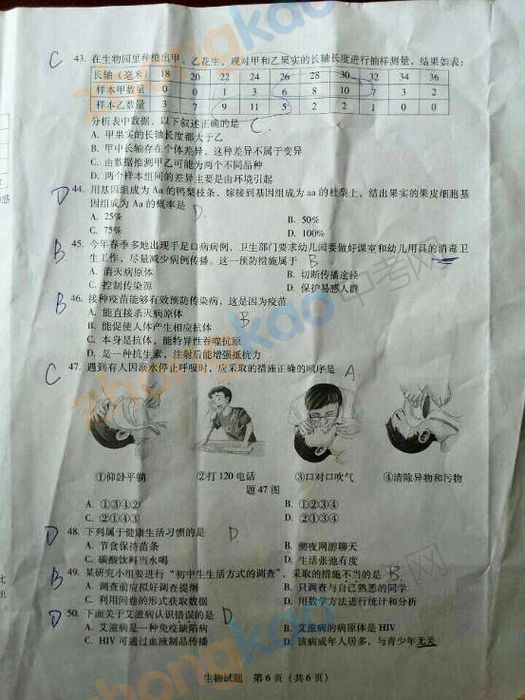 C 43. 在生物园里种植出甲、乙花生，现对甲和乙果实的长轴长度进行抽样测量，结果如表：
长轴（毫米） 18 20 22 24 26 28 30 32 34 36
样本甲数量 0 0 1 3 6 8 10 7 3 2
样本乙数量 3 7 9 11 5 2 2 1 0 0
分析表中数据，以下叙述正确的是 C.
A. 甲果实的长轴长度都大于乙
B. 甲中长轴存在个体差异，这种差异不属于变异
C. 由数据推测甲乙可能为两个不同品种
D. 两个样本组间的差异主要是由环境引起
D 44. 用基因组成为 Aa 的鸭梨枝条，嫁接到基因组成为 aa 的杜梨上，结出果实的果皮细胞基
因组成为 Aa 的概率是 D.
A. 25% B. 50%
C. 75% D. 100%
B 45. 今年春季多地出现手足口病病例，卫生部门要求幼儿园要做好课室和幼儿用具的消毒卫
生工作，尽量减少病例传播。这一预防措施属于 B
A. 消灭病原体 B. 切断传播途径
C. 控制传染源 D. 保护易感人群
B 46. 接种疫苗能够有效预防传染病，这是因为疫苗
A. 能直接杀灭病原体 B
B. 能促使人体产生相应抗体
C. 本身是抗体，能特异性吞噬抗原
D. 是一种抗生素，注射后能增强抵抗力
C 47. 遇到有人因溺水停止呼吸时，应采取的措施正确的顺序是 A
①仰卧平躺 ②打 120 电话 ③口对口吹气 ④清除异物和污物
题 47 图
A. ①③④② B. ①②③④
C. ②①④③ D. ②①③④
D 48. 下列属于健康生活习惯的是 D.
A. 节食保持苗条 B. 彻夜网游聊天
C. 碳酸饮料当水喝 D. 生活张弛有度
B 49. 某研究小组要进行“初中生生活方式的调查”，采取的措施不当的是 B.
A. 调查前应拟好调查提纲 B. 只调查与自己熟悉的同学
C. 利用问卷的形式获取数据 D. 用数学方法进行统计和分析
D 50. 下面关于艾滋病认识错误的是 D
A. 艾滋病是一种免疫缺陷病 B. 艾滋病的病原体是 HIV
C. HIV 可通过血液制品传播 D. 该病成年人居多，与青少年无关
生物试题 第 6 页（共 6 页）